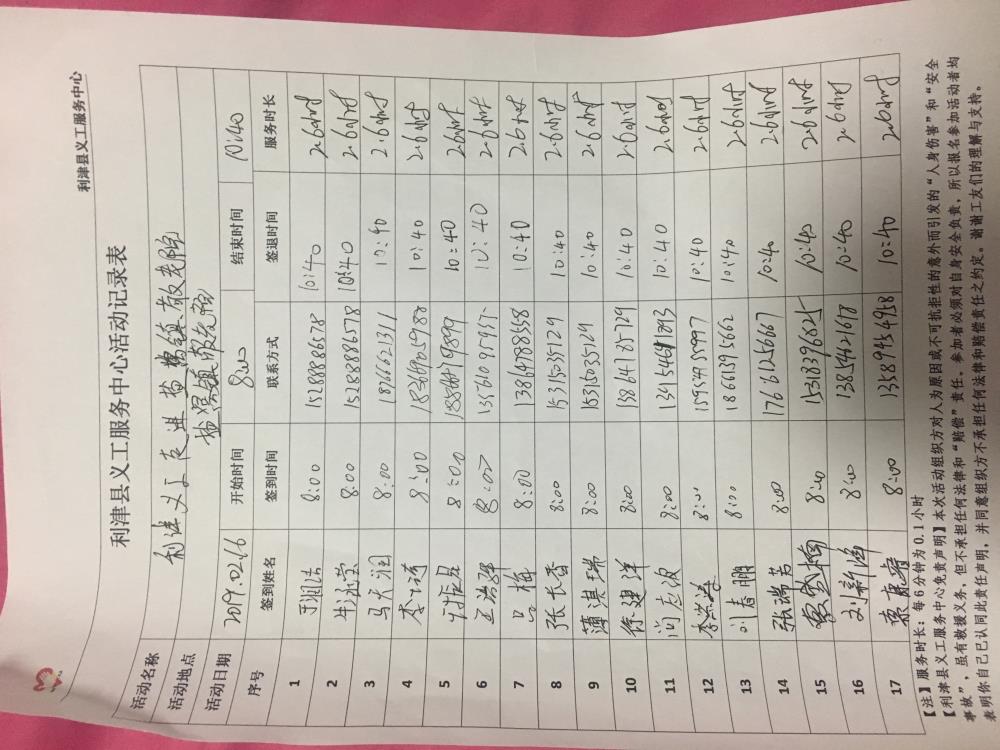 利津县义工服务中心
利津县义工服务中心活动记录表
活动名称 利津义工走进盐窝镇敬老院
活动地点 盐窝镇敬老院
活动日期 2019.02.16 开始时间 8:00 结束时间 10:40
序号 签到姓名 签到时间 联系方式 签退时间 服务时长
1 8:00 15288886578 10:40 2.6小时
2 8:00 15288886578 10:40 2.6小时
3 8:00 18766621311 10:40 2.6小时
4 8:00 10:40 2.6小时
5 8:00 10:40 2.6小时
6 王浩翠 8:00 10:40 2.6小时
7 吕梅 8:00 13864788558 10:40 2.6小时
8 张长香 8:00 15315035129 10:40 2.6小时
9 薄淇瑞 8:00 15315035129 10:40 2.6小时
10 徐建洋 8:00 10:40 2.6小时
11 尚应波 8:00 10:40 2.6小时
12 8:00 10:40 2.6小时
13 刘春鹏 8:00 18661395662 10:40 2.6小时
14 张瑞芳 8:00 17616256667 10:40 2.6小时
15 8:00 15318396825 10:40 2.6小时
16 刘新海 8:00 13854421678 10:40 2.6小时
17 8:00 13589454958 10:40 2.6小时
【注】服务时长：每6分钟为0.1小时
【利津县义工服务中心免责声明】本次活动组织方对人为原因或不可抗拒性的意外而引发的“人身伤害”和“安全
事故”，虽有救援义务，但不承担任何法律和“赔偿”责任。参加者必须对自身安全负责，所以报名参加活动者均
表明你自己已认同此责任声明，并同意组织方不承担任何法律和赔偿责任之约定。谢谢工友们的理解与支持。